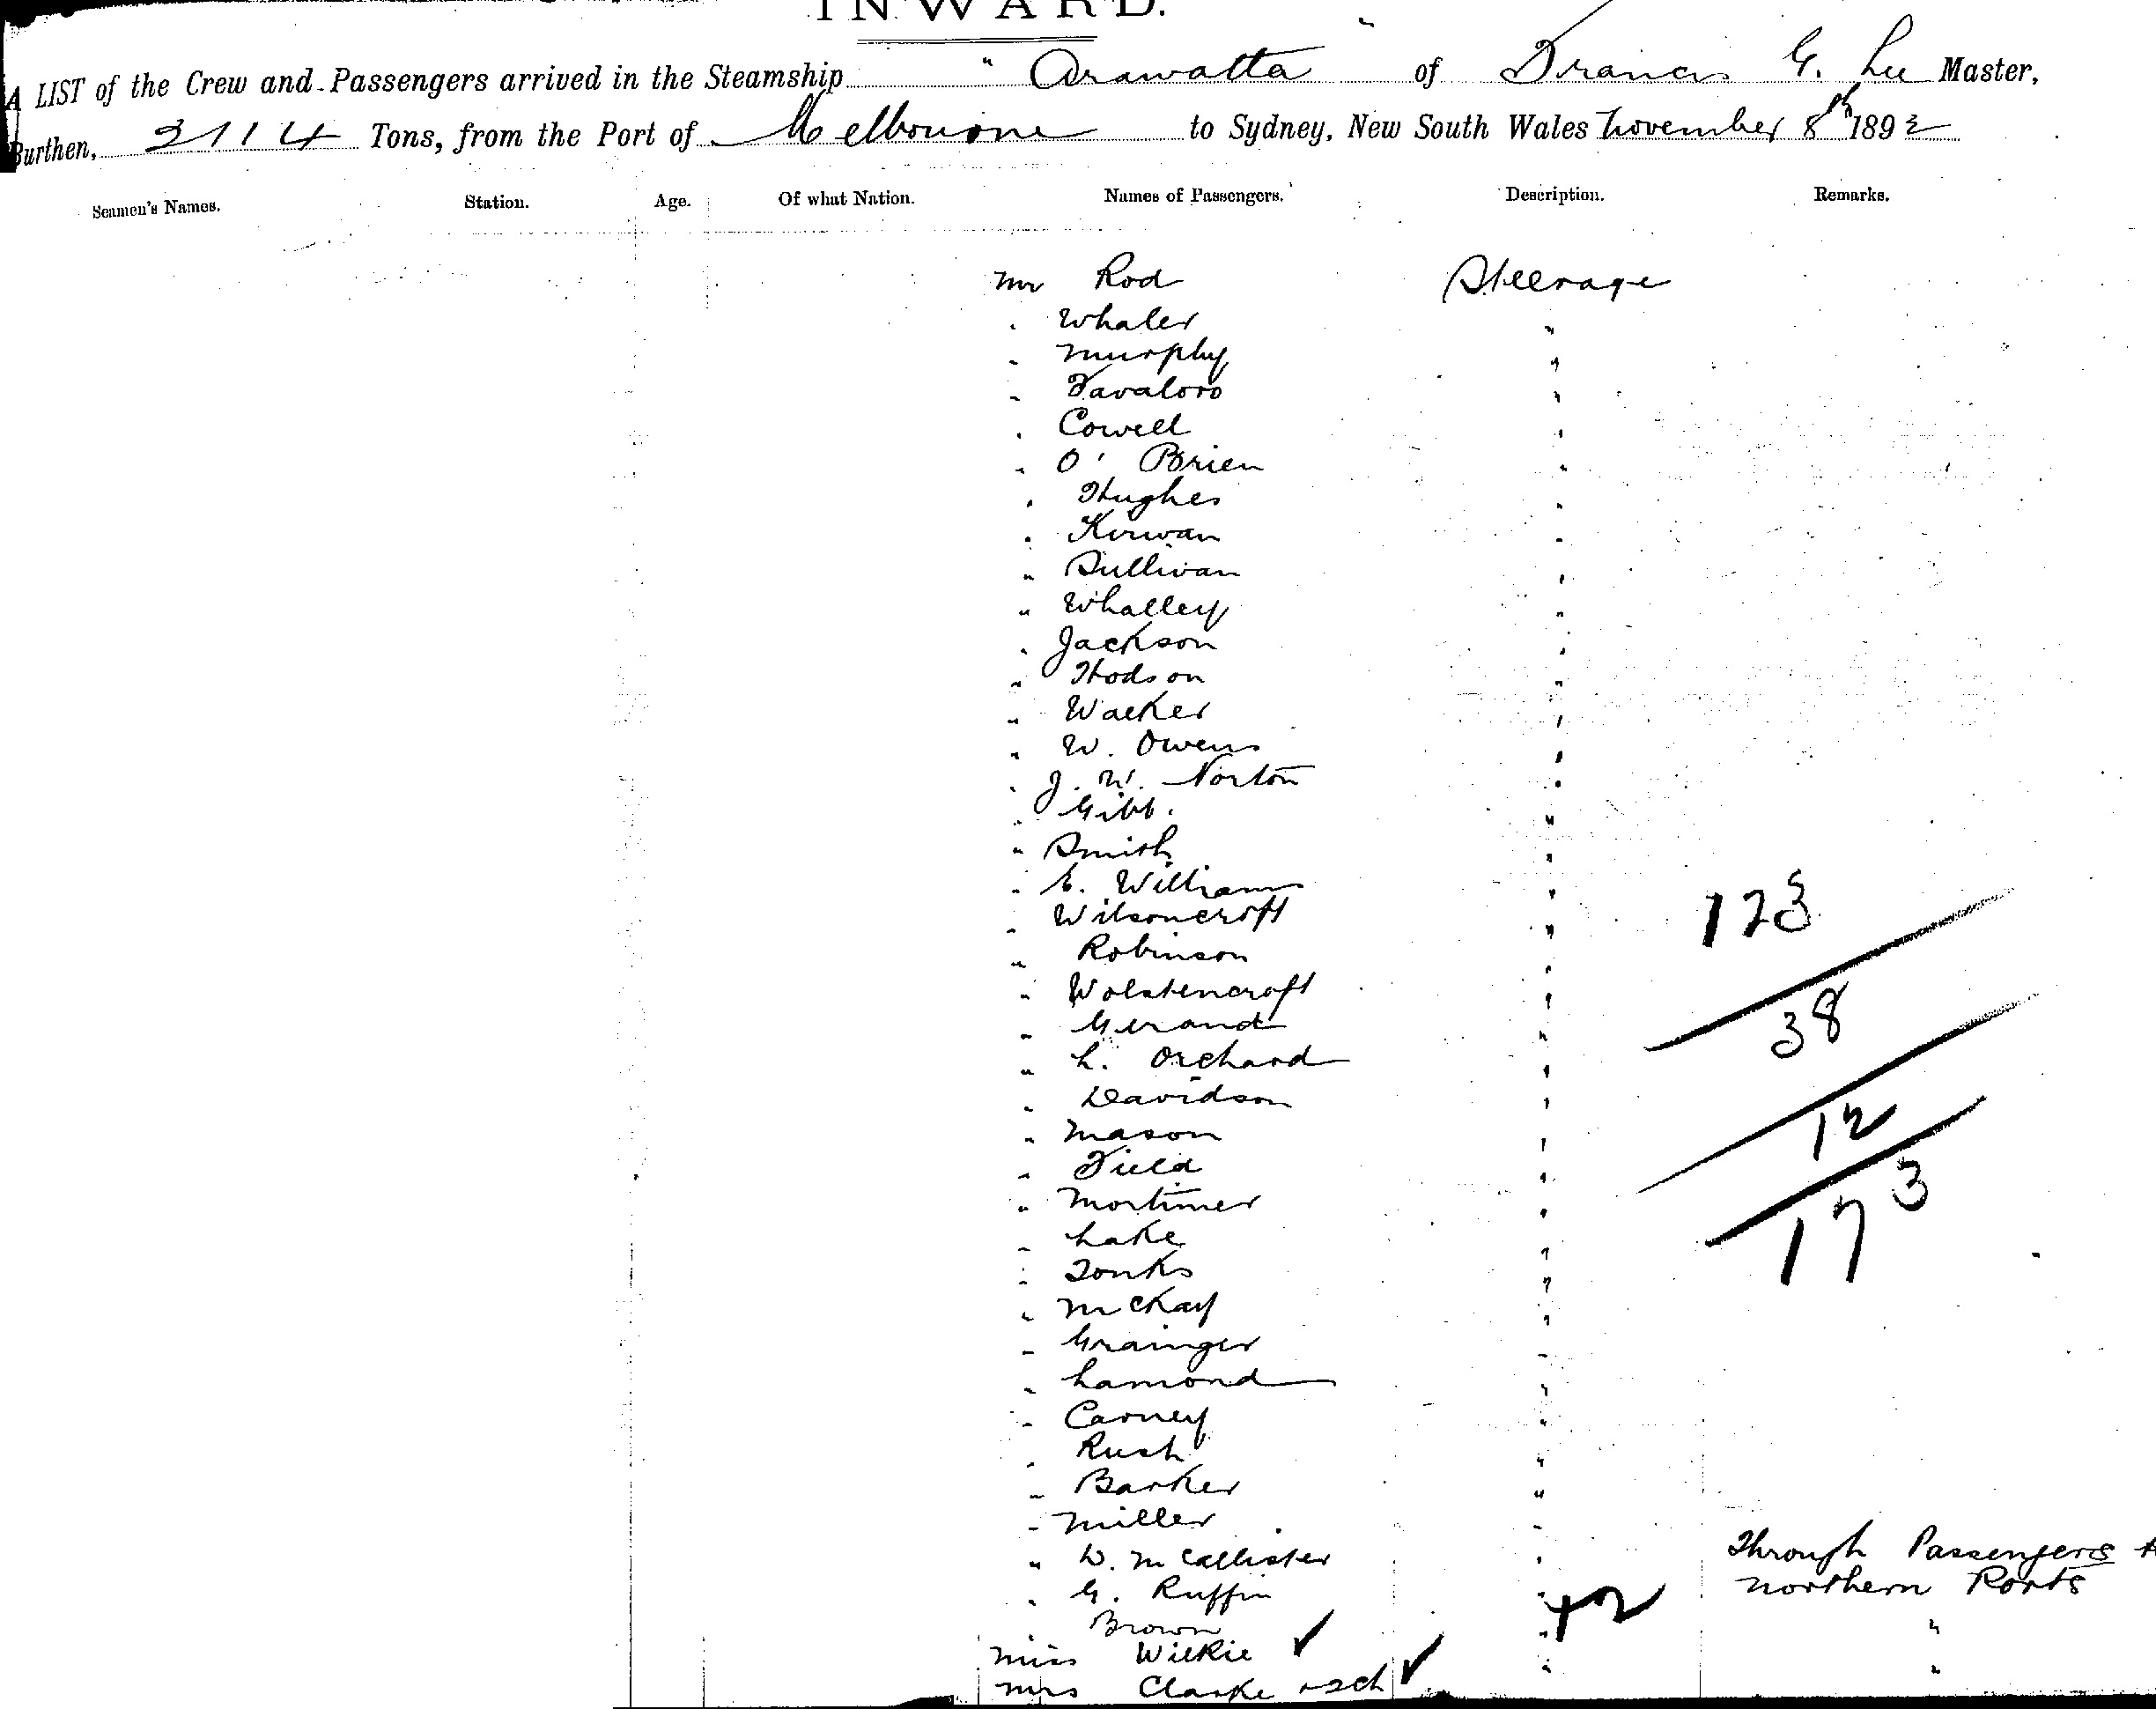 INWARD.
A LIST of the Crew and Passengers arrived in the Steamship "Arawatta" of Francis G. Lee Master,
Burthen, 2114 Tons, from the Port of Melbourne to Sydney, New South Wales November 8th 1892
Seamen's Names. Station. Age. Of what Nation. Names of Passengers. Description. Remarks.
Mr Rod Steerage
" Whaler "
" Murphy "
" Favaloro "
" Cowell "
" O'Brien "
" Hughes "
" Kirwan "
" Sullivan "
" Whalley "
" Jackson "
" Hodson "
" Walker "
" W. Owens "
" J. W. Norton "
" Gibb. "
" Smith "
" E. Williams " 123
" Wilsoncroft "
" Robinson "
" Wolstencroft "
" Gerand " 38
" L. Orchard "
" Davidson "
" Mason " 12
" Field "
" Mortimer " 173
" Lake "
" Tonks "
" McKay "
" Grainger "
" Lamond "
" Carney "
" Rush "
" Barker "
" Miller "
" McCallister " Through Passengers
" G. Ruffin " Northern Ports
" Brown " "
Miss Wilkie ✓ " "
Mrs Clarke ✓